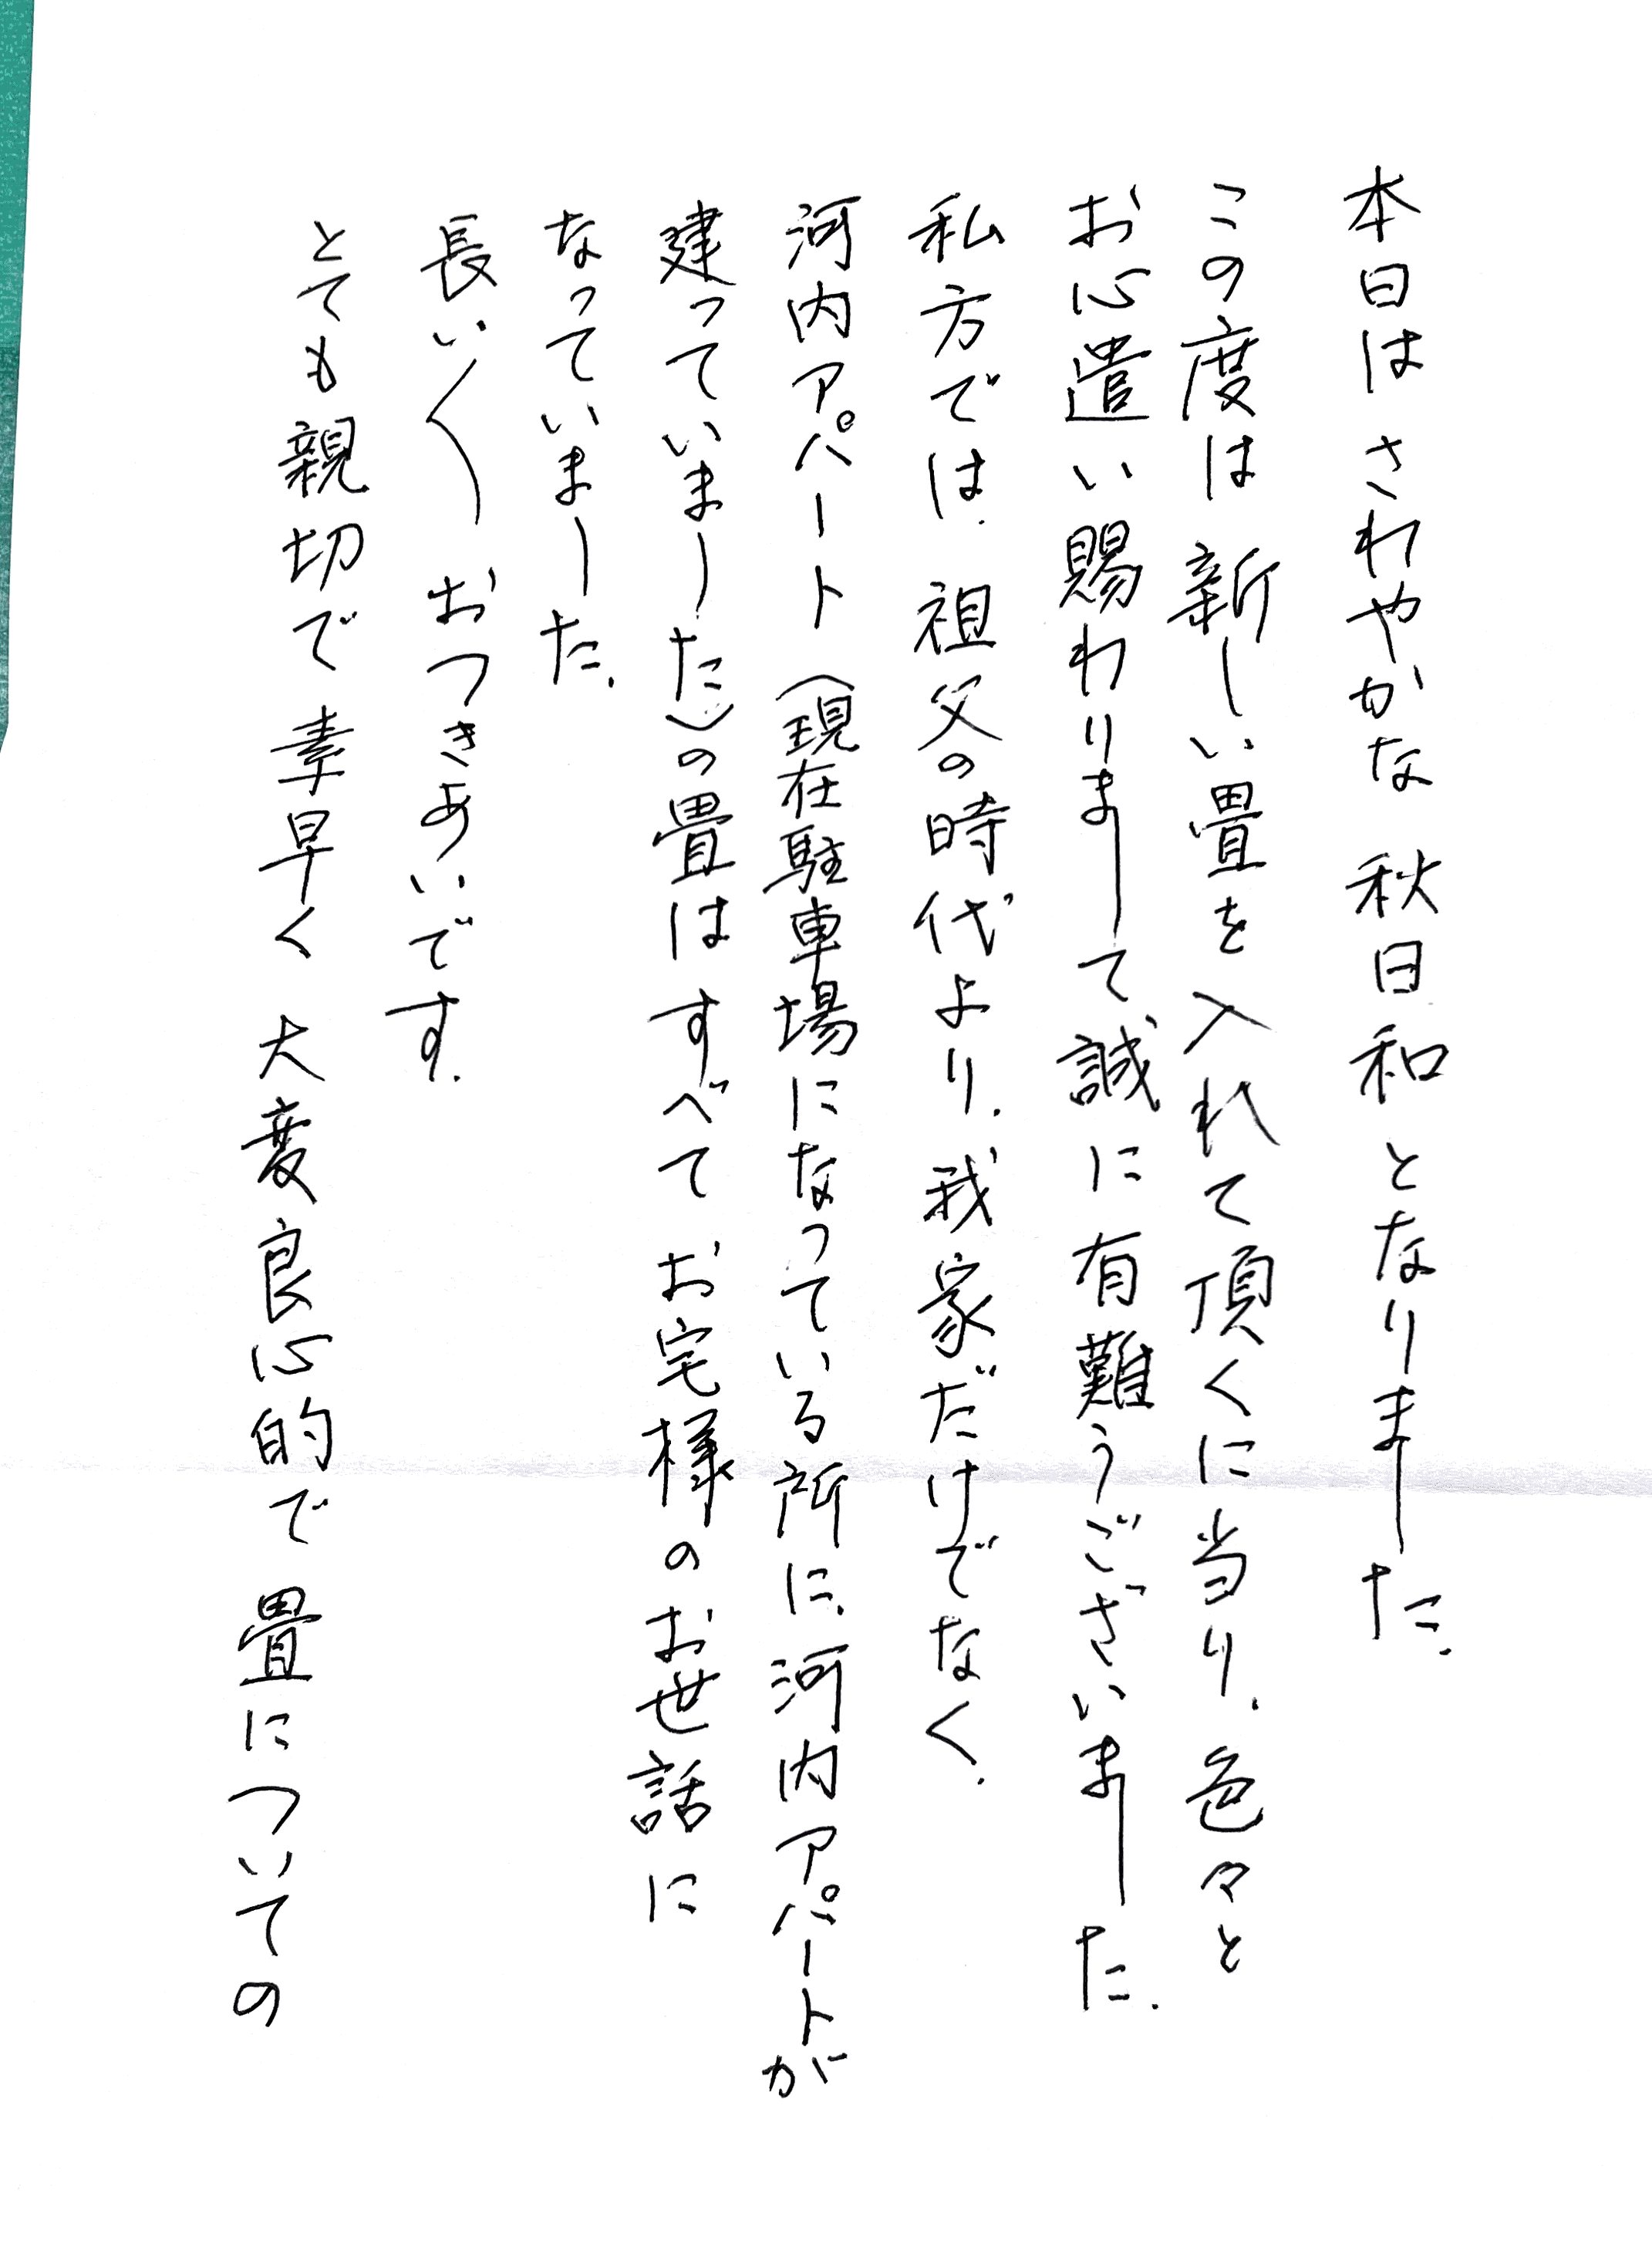 本日はさわやかな 秋日和となりました.
この度は新しい畳を入れて頂くに当り.色々と
お心遣い賜わりまして誠に有難うございました.
私方では.祖父の時代より.我家だけでなく.
河内アパート(現在駐車場になっている所に.河内アパートが
建っていました)の畳はすべてお宅様のお世話に
なっていました.
長い〱 おつきあいです.
とても親切で素早く 大変良心的で 畳についての